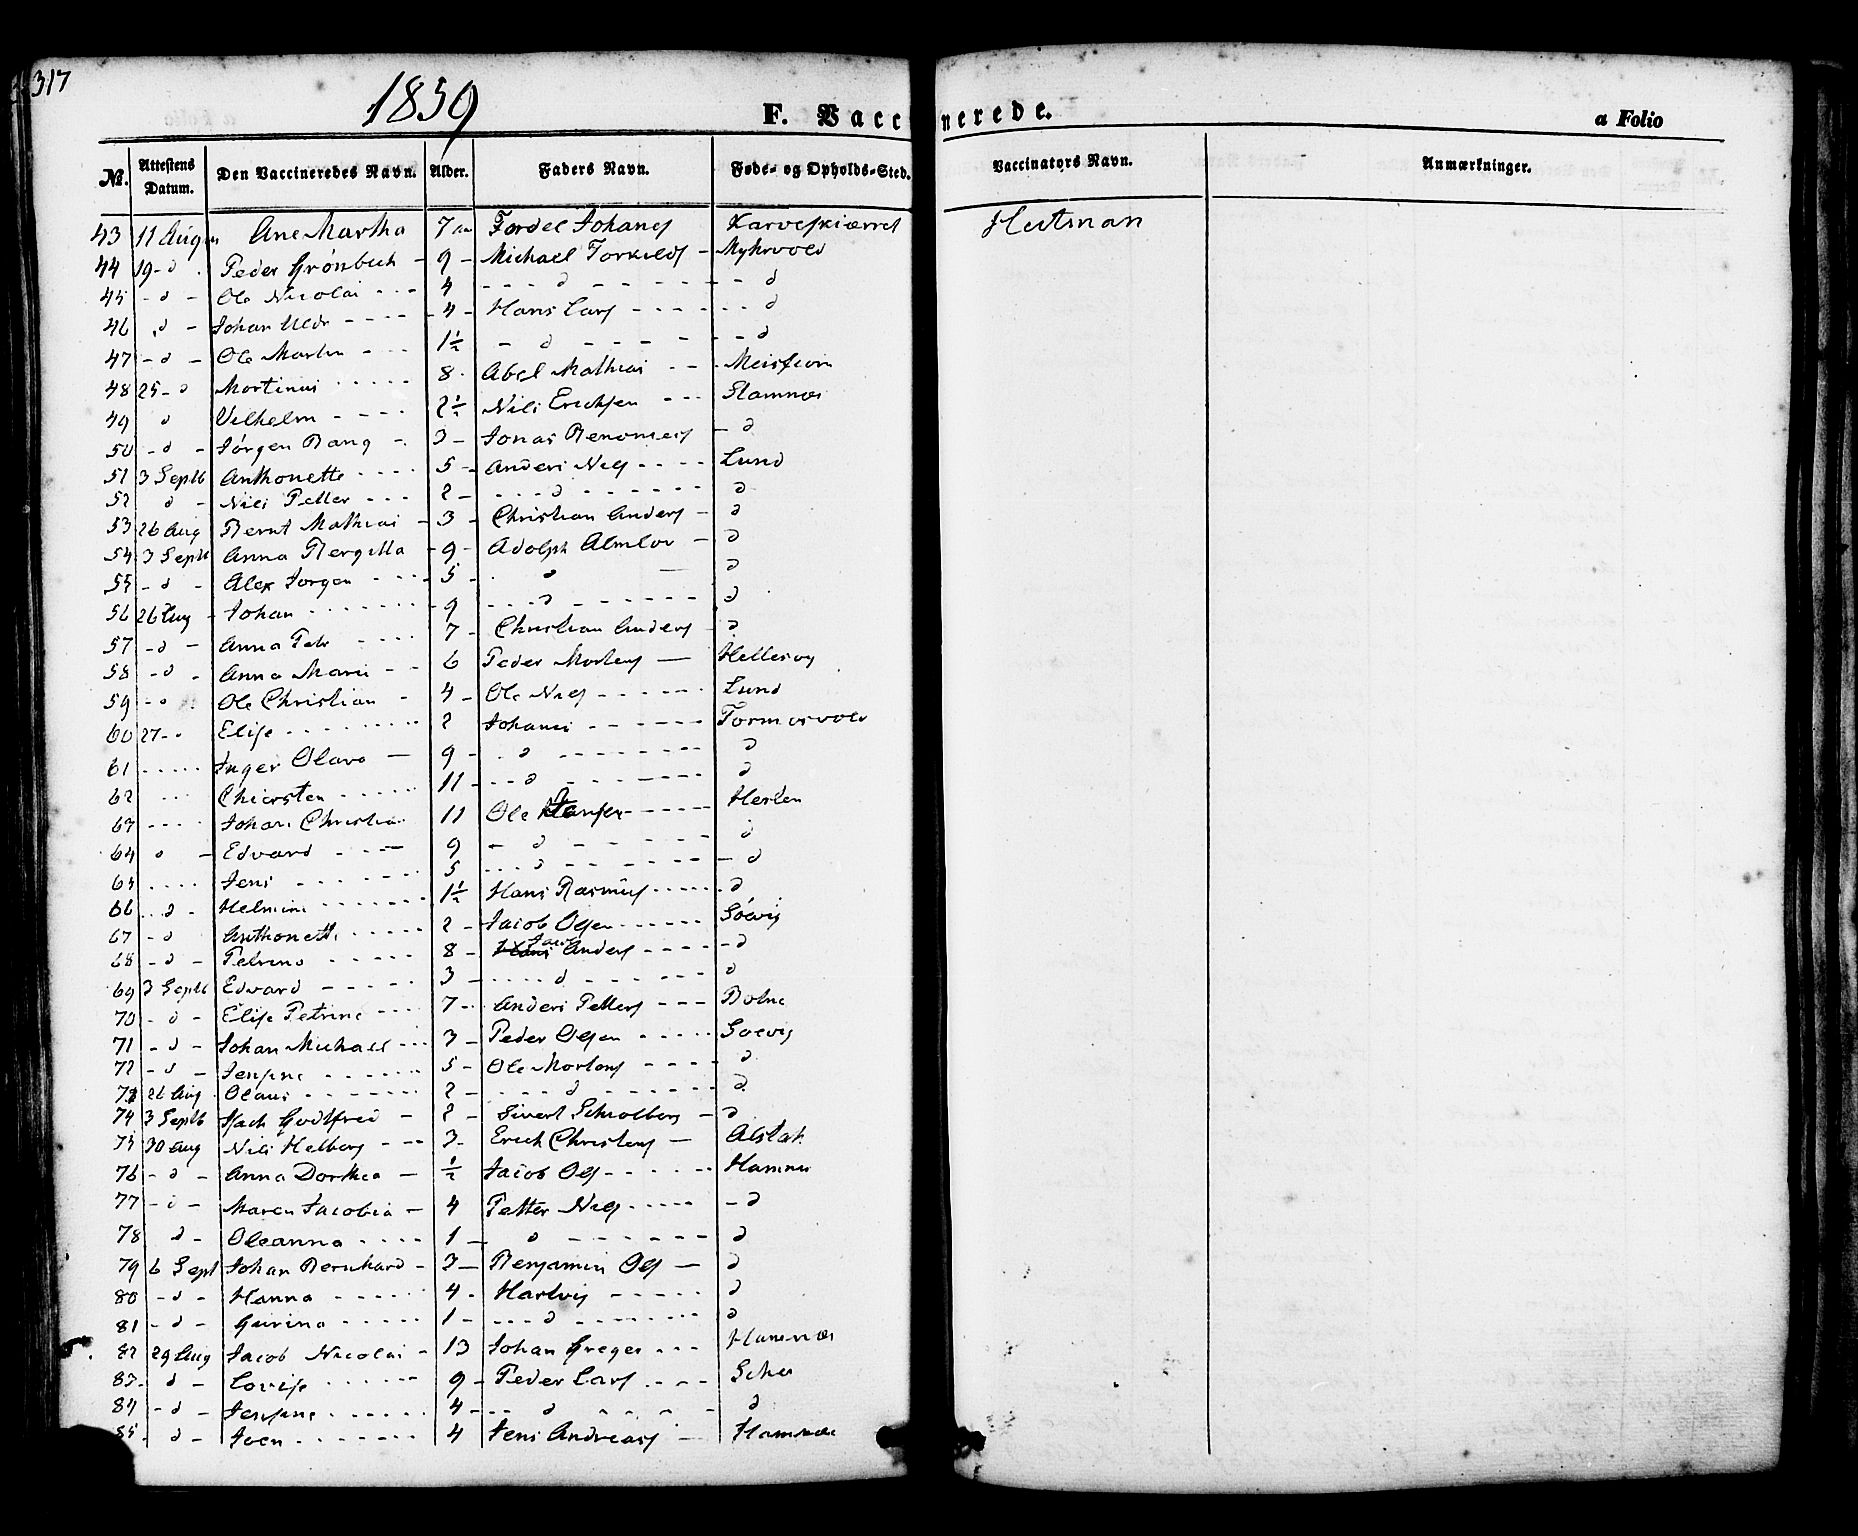 317
1859
F. Vaccinerede.
a Folio
No. Attestens Datum. Den Vaccineredes Navn. Alder. Faders Navn. Føde- og Opholds-Sted. Vaccinators Navn. Anmærkninger.
43 11 August Ane Martha 7 Tordel Johanes Karveskiærret Heitman
44 19 - d Peder Grönbech - 9 - Michael Torkilds - Myhrvold
45 - d - Ole Nicolai - - - 4 - - - d - - - - d
46 d - Johan - - - - 4 - Hans Lars - - - - d
47 - d - Ole Martin - - - 1½ - d - - - - - - d
48 25 - d Mortinus - - - - 8 - Abel Mathias - - -
49 d Vilhelm - - - - 2½ Nils Erichsen - - - Stamnæs
50 - d - Jørgen Bang - 3 - Jonas - d
51 3 Septb Anthonette - - - - 5 - Anders Niels - - - - Lund
52 d - Nils Petter - - - 2 - - - - d - - - - - d
53 26 Aug Bernt Mathias - 3 - Christian Anders - d
54 3 Septb Anna Bergitta - 9 - Adolph Almlov - d
55 - d - Alex Jorgen - - - 5 - d - d
56 26 Aug - Johan - - - - - 9 - - - d - - - - - d
57 - d - Anna Petr - - - - 7 - Christian Anders - d
58 - d - Anna Marie - - 6 Peder Mortens - Hellesvig
59 - - Ole Christian - 4 - Ole Niels - - - - - Lund
60 27 - - Elise - - - - - 2 Johanes - - - - Tormosvold
61 - - - - Inger Olava - 9 - - d - - - - - d
62 - - - Chiersten - - - - 11 - - - d - - - - - d
63 - - - - Johan Christian 11 Ole Hansen - - - - Herlen
64 d - Edvard - - - 9 - d - - - - d
65 - - - - Jens - - - - - 5 - - - d - - - - - d
66 - - d - Helmine - - - - - 1½ Hans Rasmus - - - - - d
67 - d Anthonette - - - - 2 - Jacob Olsen - - - - Söevig
68 - d - Petrine - - - - 8 - Jacob Anders - - - - d
69 3 Septb Edvard - - - - 3 - - - - d - - - - - d
70 - d - Elise Petrine - - - 7 - Anders Petters - - - Botne
71 - d - Johan Michael - - - 3 - Peder Olsen - - - - Soevig
72 - d - Jensine - - - - - 5 - Ole Mortens - - - - d
73 26 Aug Olaus - - - - - 2 - - - - d - - - - - d
74 3 Septb Isach Godtfred - 2 - Sivert Schiolberg - d
75 30 Aug Nils Helberg - - - 3 - Erich Christens - Alstah.
76 - d - Anna Dorthea - ½ Jacob Ols - - - - Hamnes
77 - d - Maren Jacobia - 4 Petter Niels - - - - - d
78 d - Oleanna - - - - 1 - d - - - - - d
79 6 Sept Johan Bernhard - 3 - Benjamin Ols - d
80 - d - Hanna - - - - - 4 - Hartvig - - - - - d
81 - d - Gurina - - - - - 1 - - - - d - - - - - d
82 29 Aug Jacob Nicolai - 13 Johan Greger - - - Hamnæs
83 - d - Lovise - - - - - 9 - Peder Lars - - - -
84 - d - Jensine - - - - - 4 - - - d - - - - d
85 - d - Joen - - - - - 4 Jens Andreas - Hamnæs